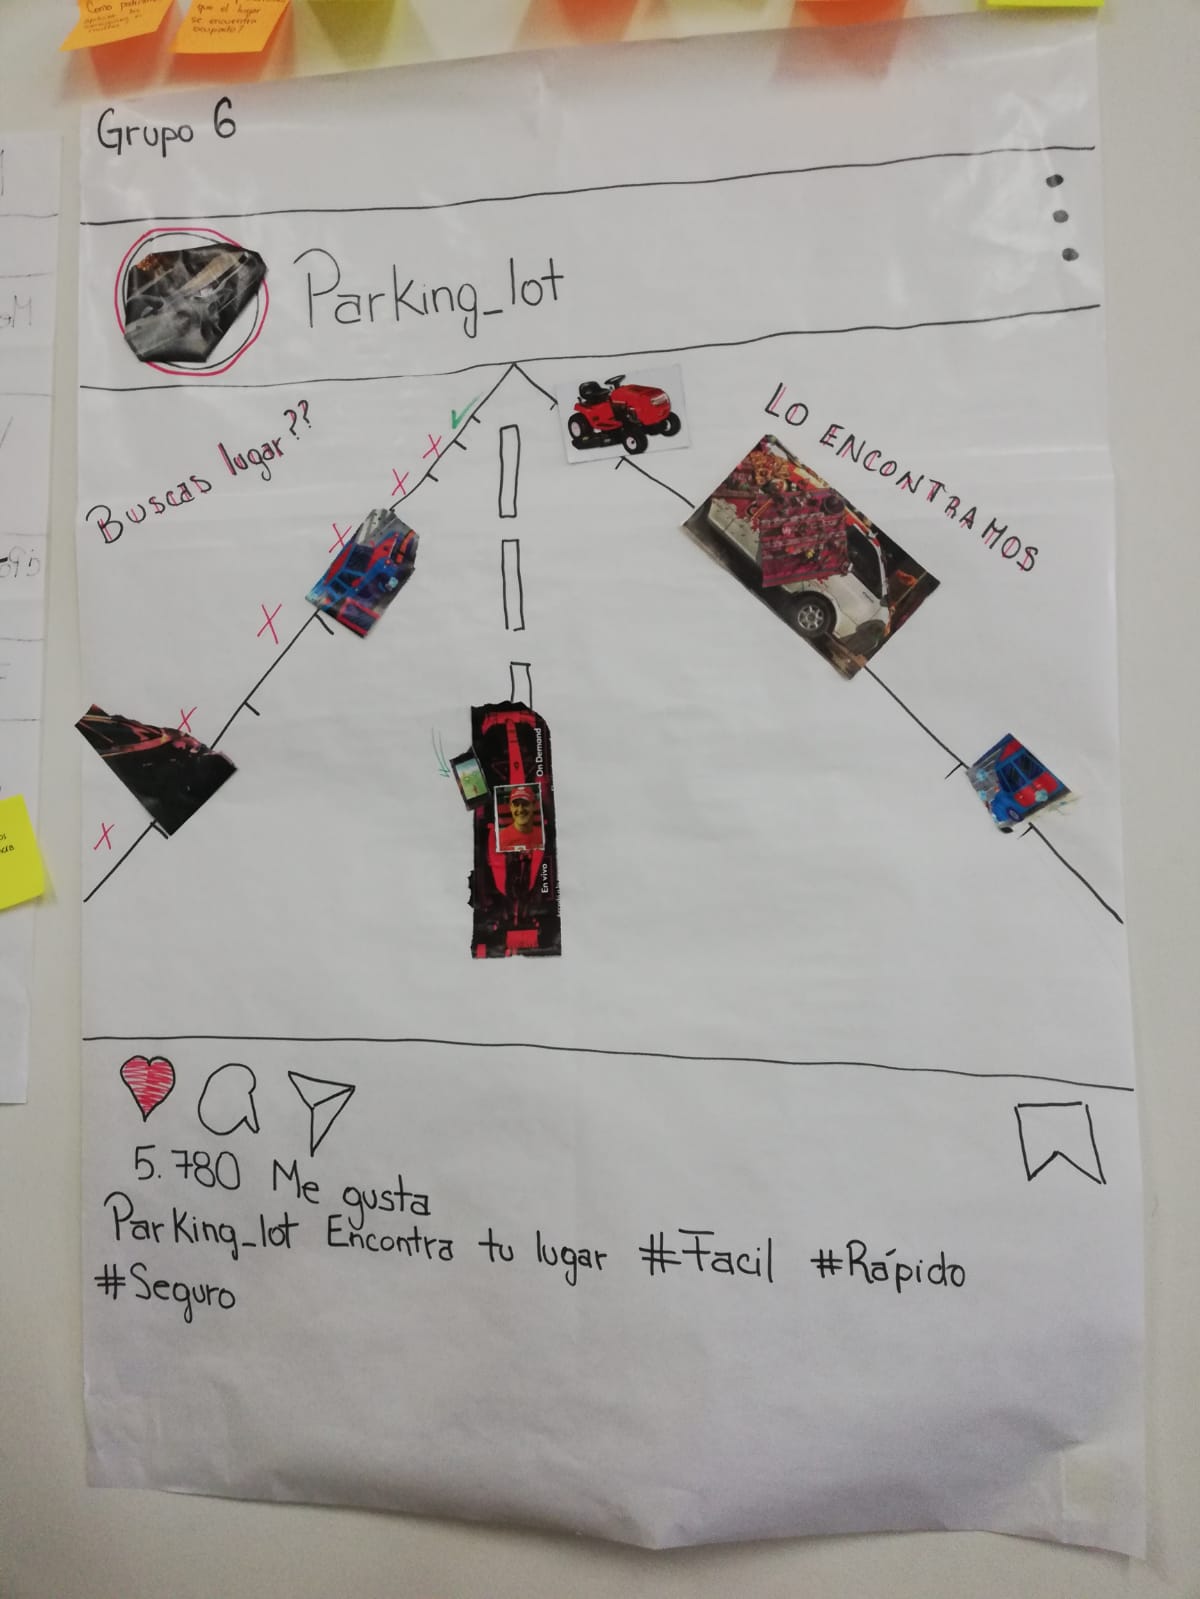 que el lugar
se encuentra
ocupado?
Grupo 6
Parking_lot
Buscas lugar??
LO ENCONTRAMOS
On Demand
En vivo
5.780 Me gusta
Parking_lot Encontra tu lugar #Facil #Rápido
#Seguro